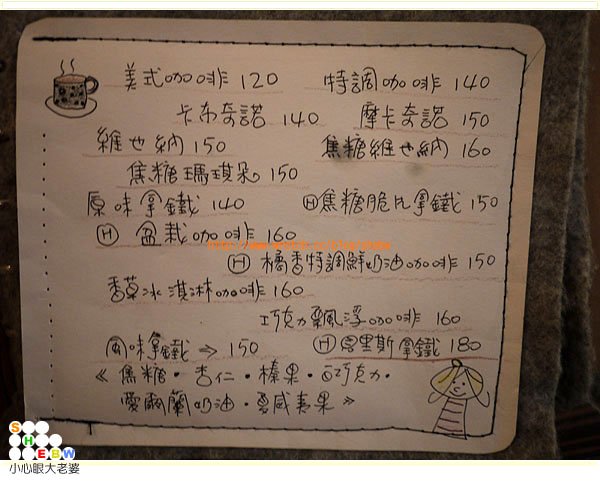 美式咖啡 120 特調咖啡 140
卡布奇諾 140 摩卡奇諾 150
維也納 150 焦糖維也納 160
焦糖瑪琪朵 150
原味拿鐵 140 Ⓗ焦糖脆片拿鐵 150
Ⓗ 盆栽咖啡 160
Ⓗ 橘香特調鮮奶油咖啡 150
香草冰淇淋咖啡 160
巧克力飄浮咖啡 160
風味拿鐵 ⇒ 150 Ⓗ 恩里斯拿鐵 180
《 焦糖・杏仁・榛果・白巧克力・
愛爾蘭奶油・夏威夷果 》
SHEBW
小心眼大老婆